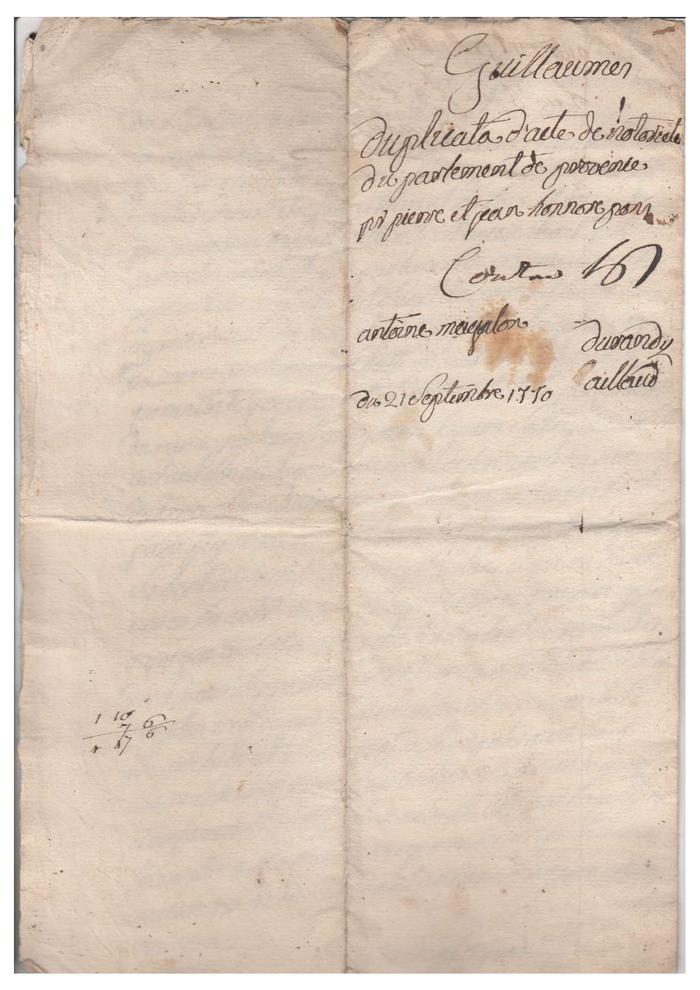 Guillaumes
duplicata d'acte de notoriété
du parlement de provence
pr pierre et jean honnoré pons
Contre
antoine magalon
durandy
caillaud
du 21 Septembre 1770
1 10
7 6
1 17 6